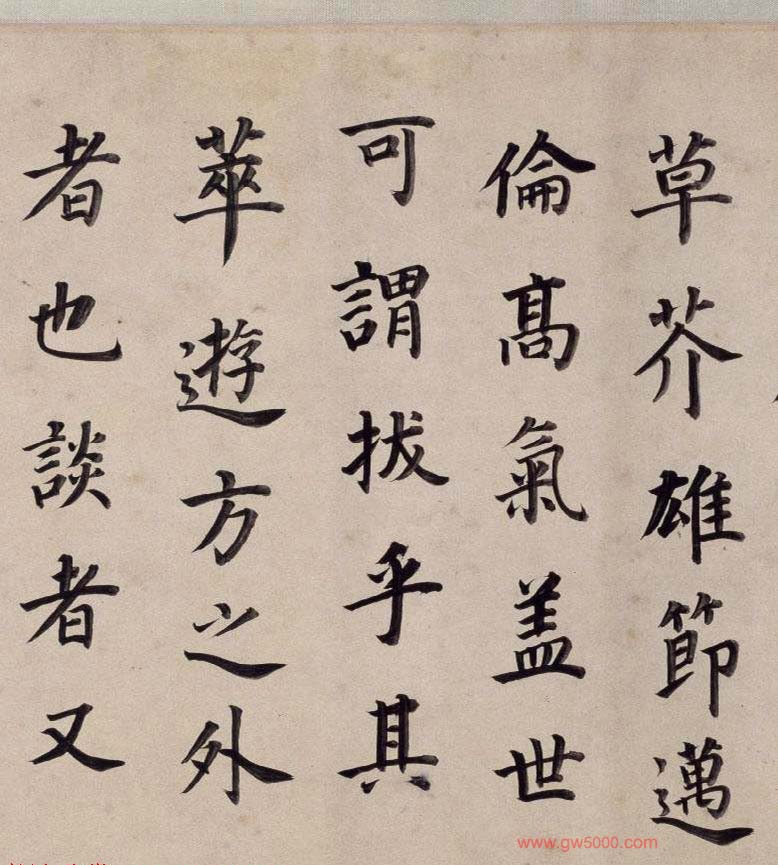 草芥雄節邁
倫高氣盖世
可謂拔乎其
萃遊方之外
者也談者又
www.gw5000.com